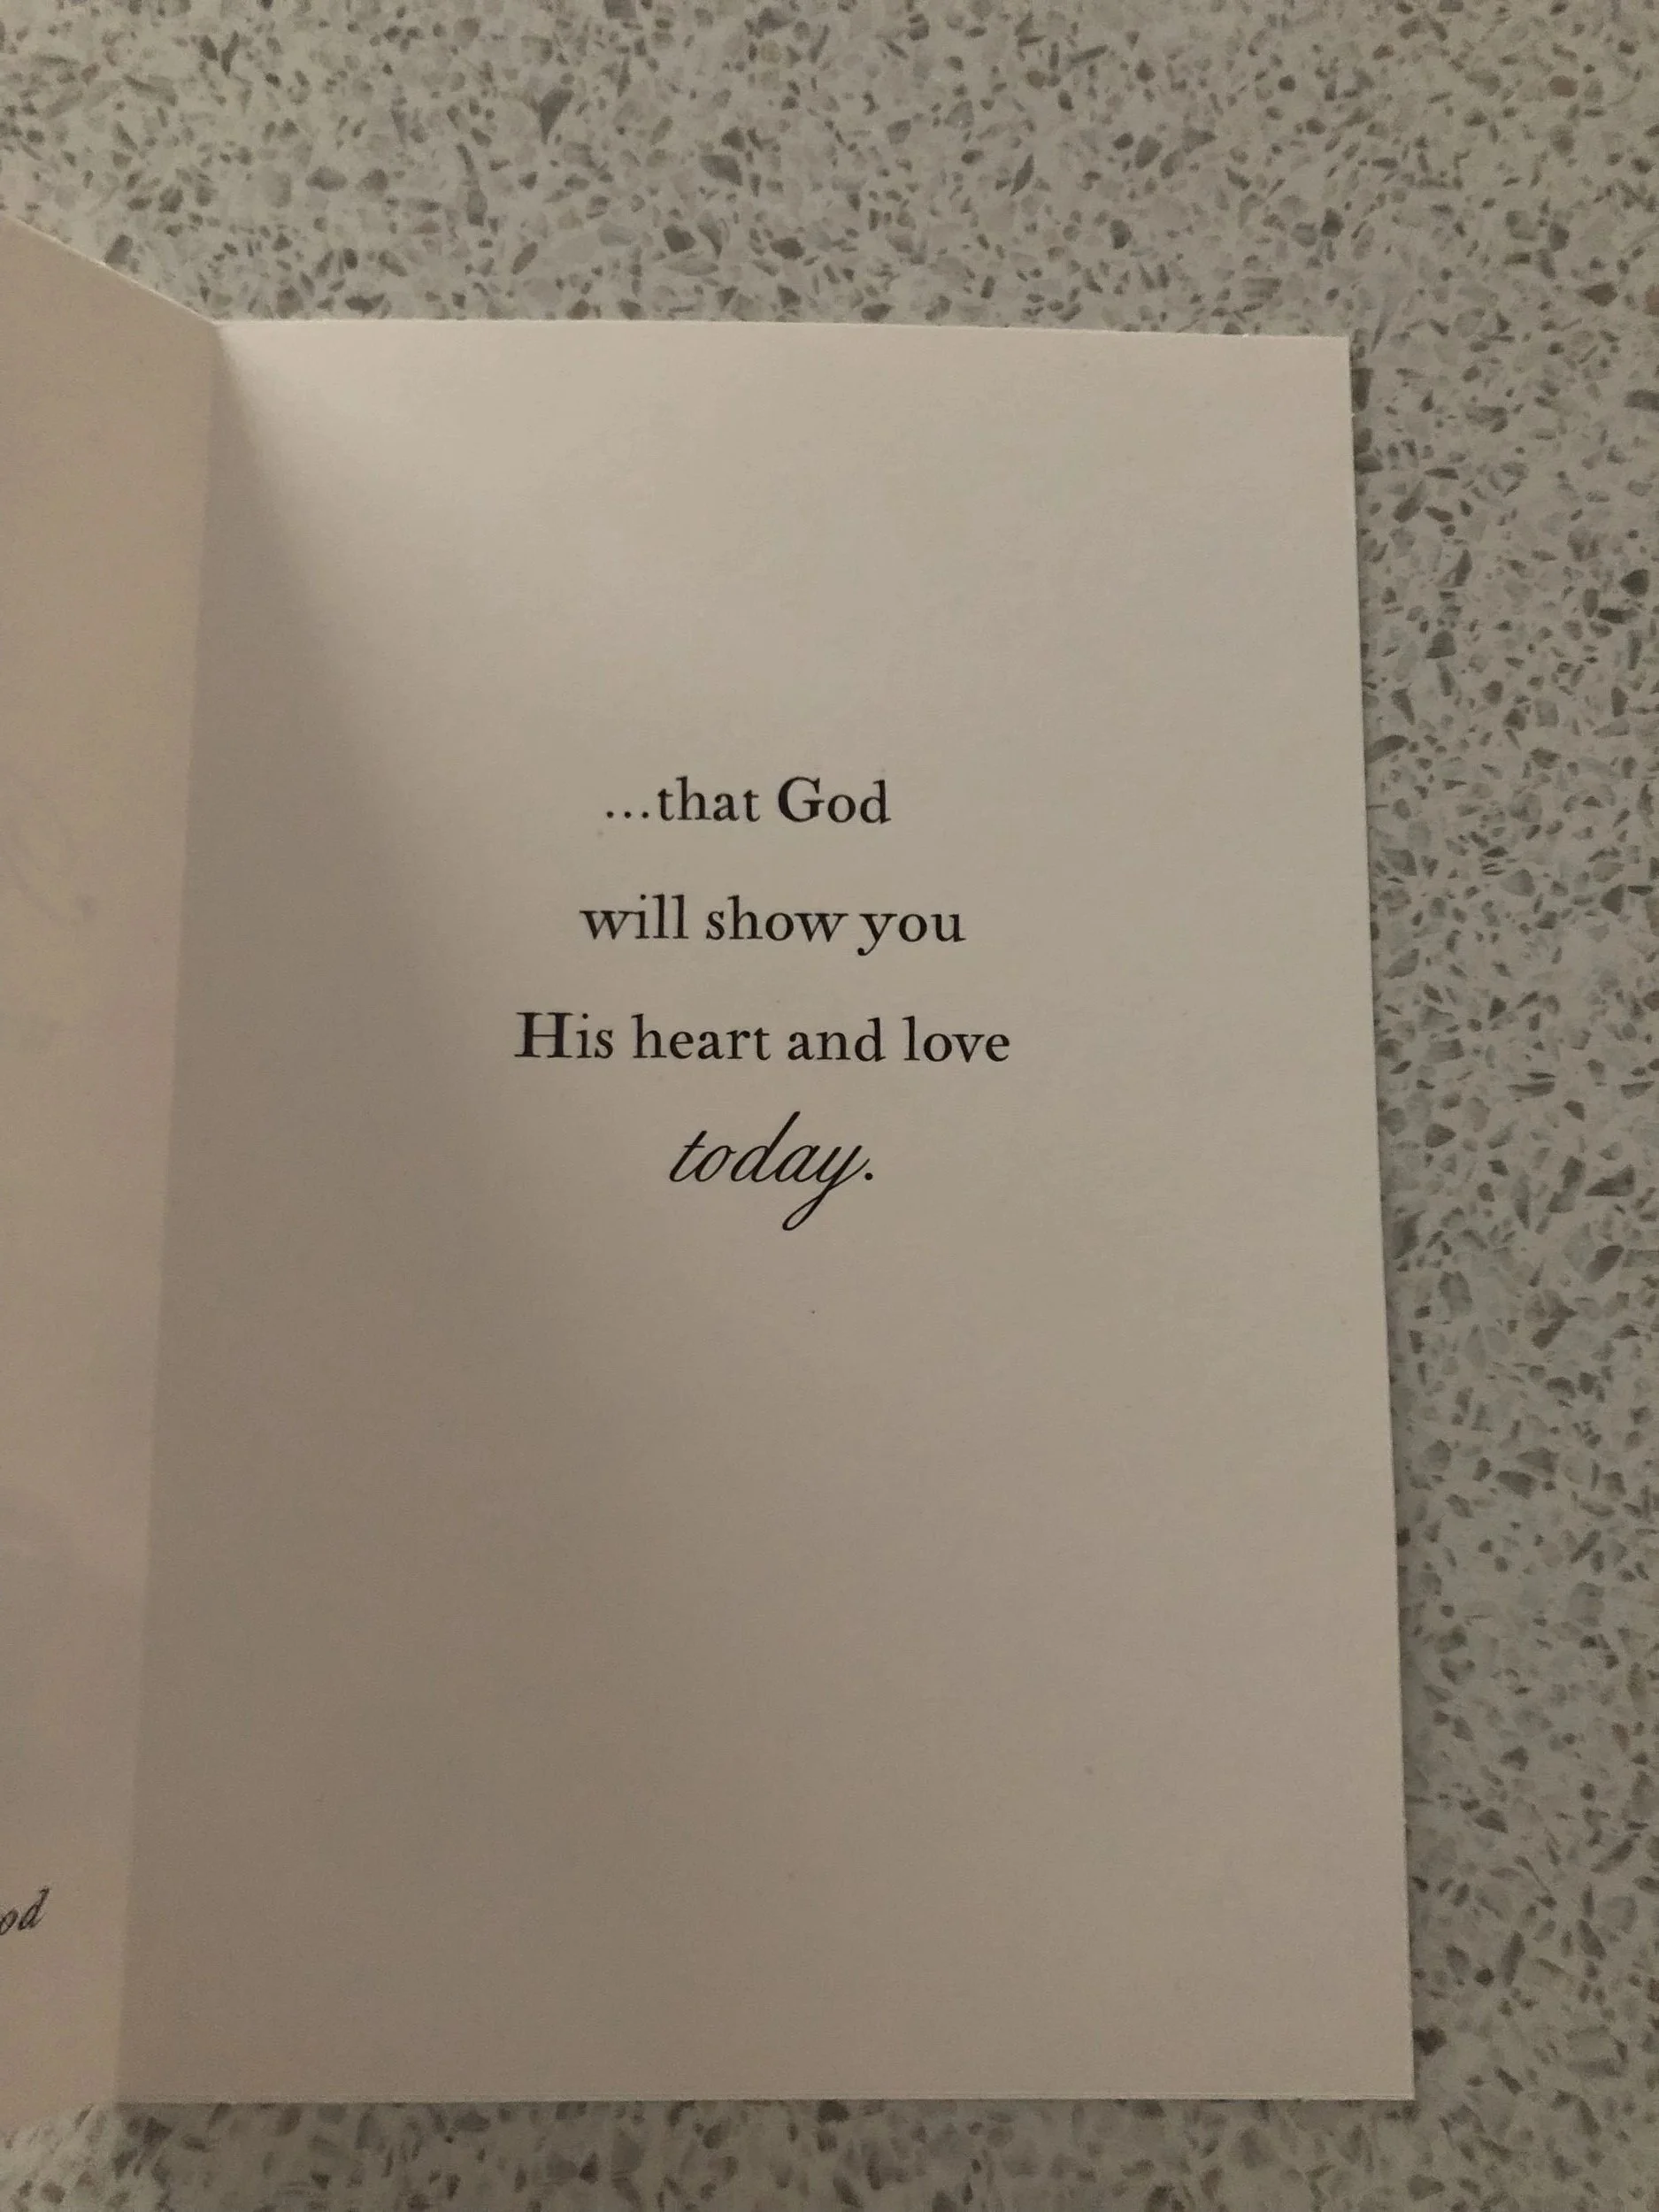 ...that God
will show you
His heart and love
today.